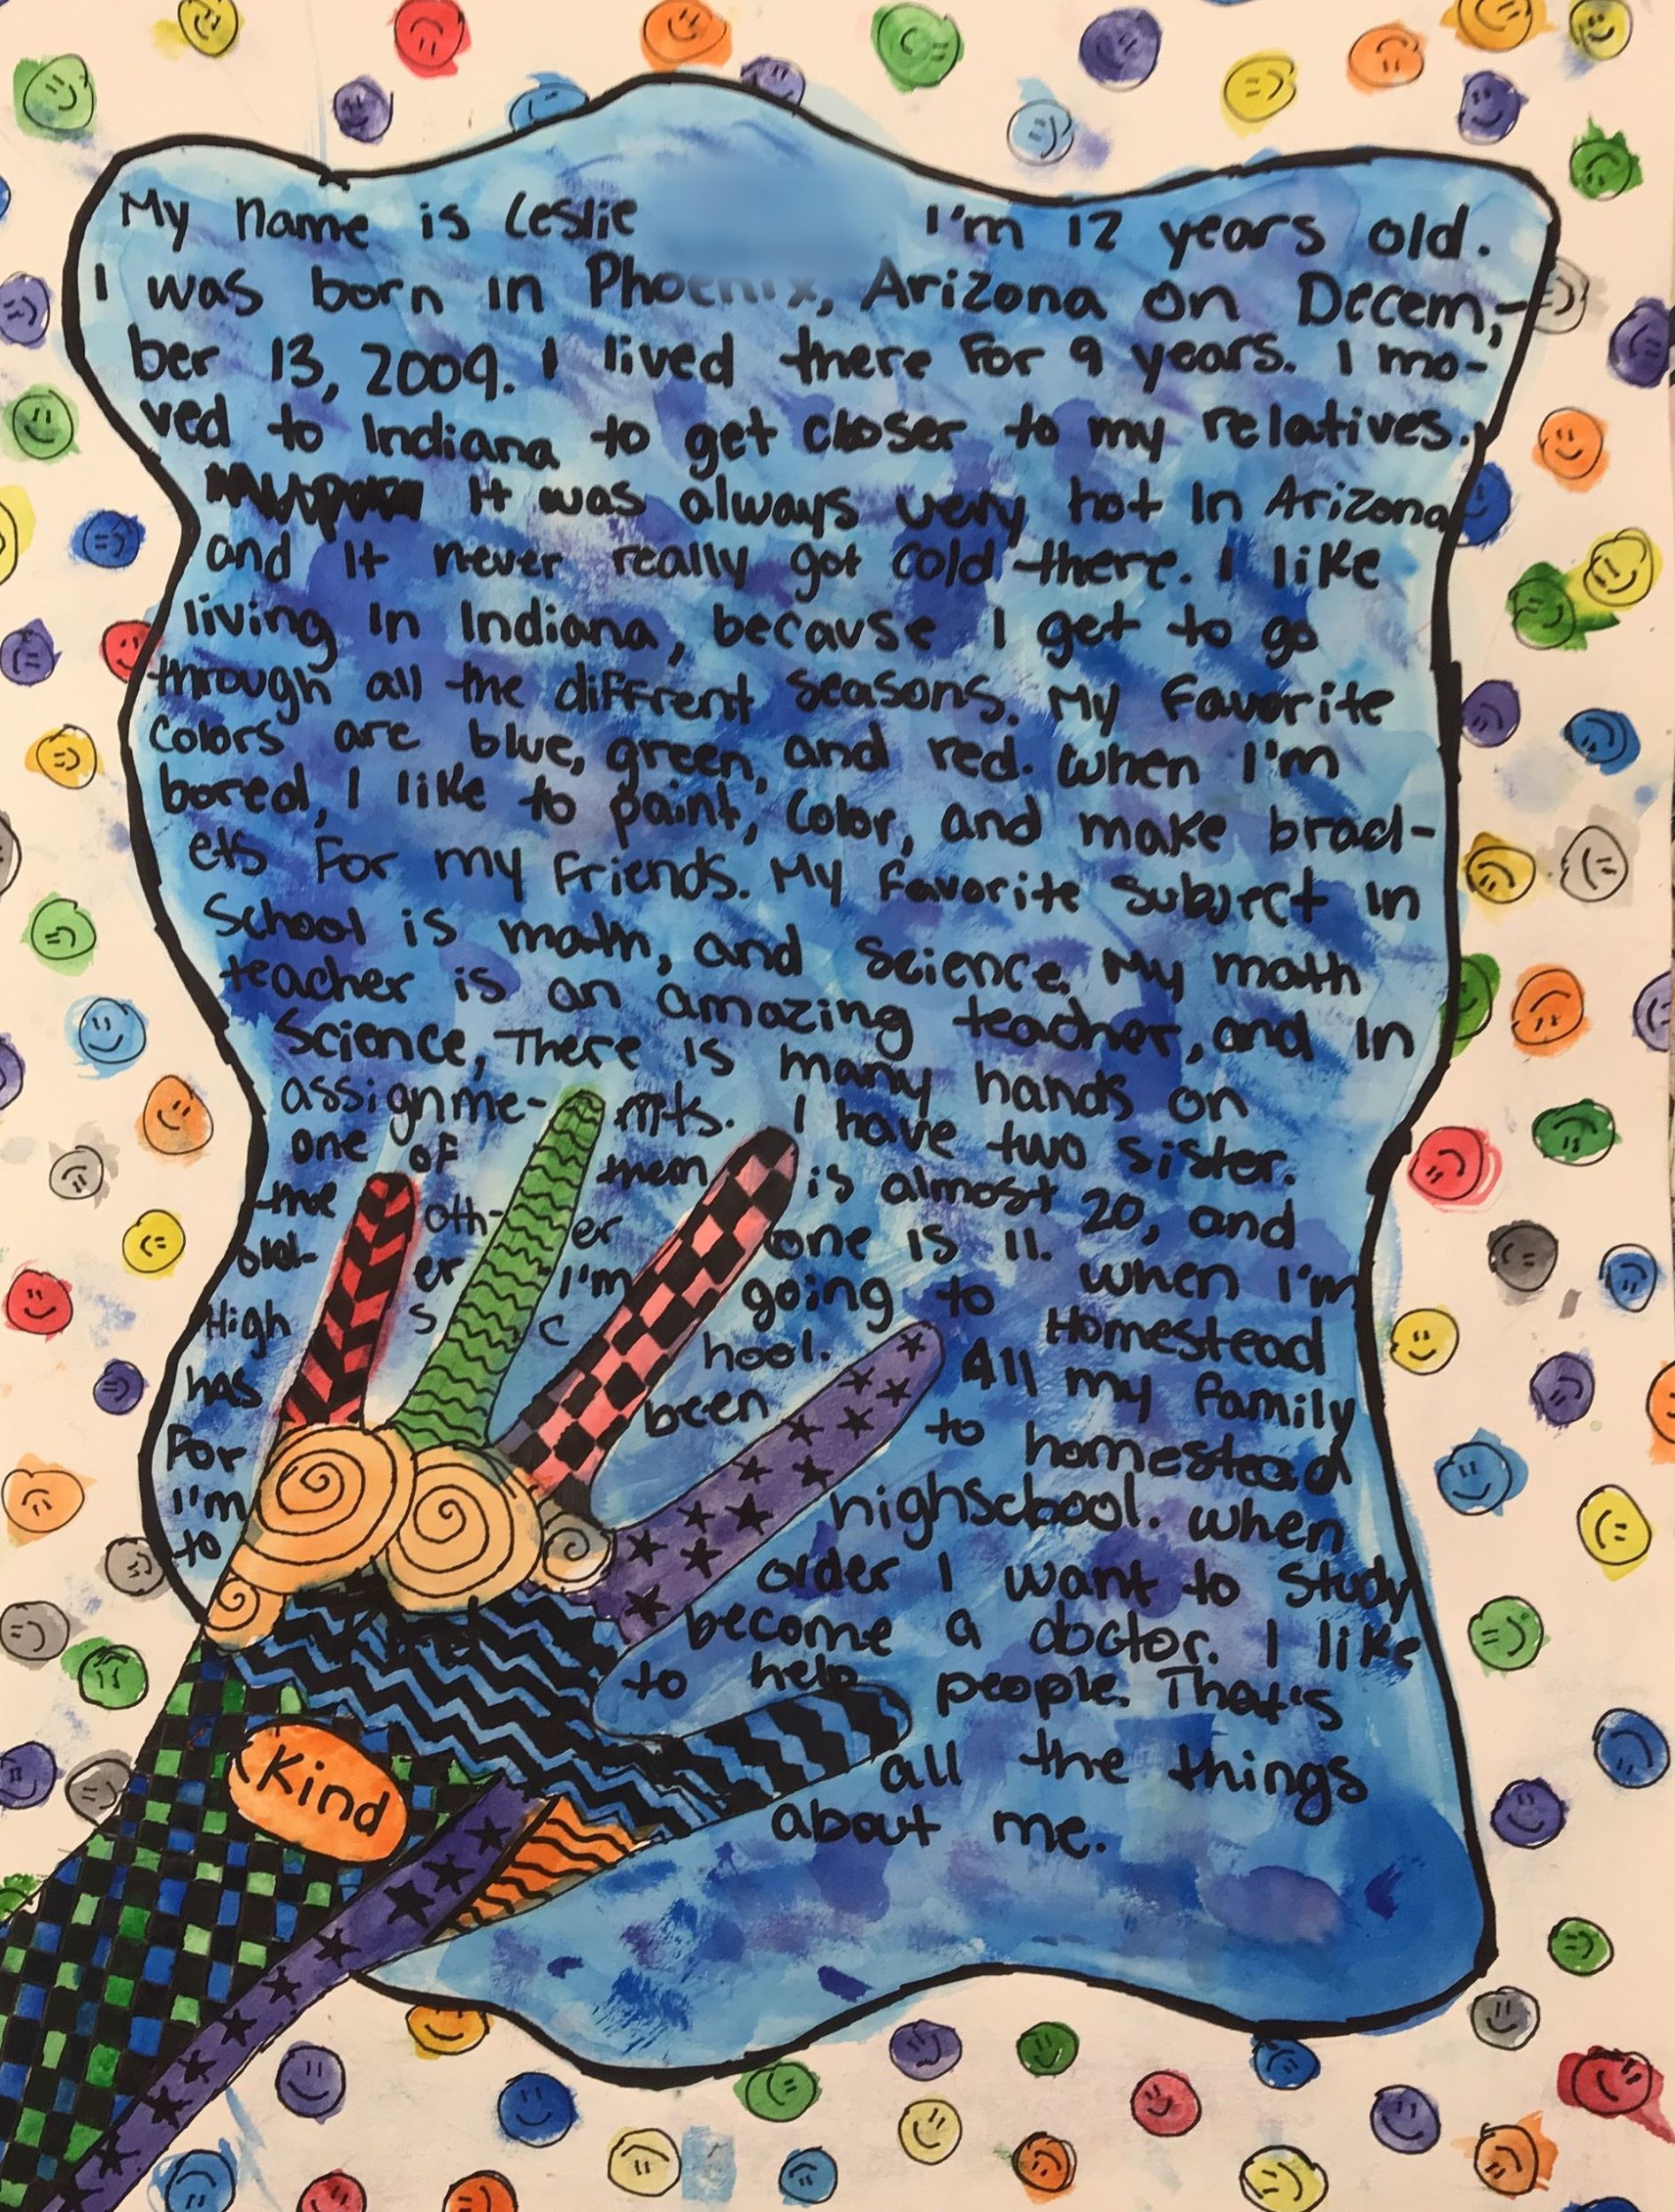 My name is Leslie I'm 12 years old.
I was born in Phoenix, Arizona on Decem-
ber 13, 2009. I lived there for 9 years. I mo-
ved to Indiana to get closer to my relatives.
It was always very hot in Arizona
and it never really got cold there. I like
living in Indiana, because I get to go
through all the diffrent seasons. My favorite
colors are blue, green, and red. When I'm
bored, I like to paint, color, and make bracl-
ets for my friends. My favorite subject in
school is math, and science. My math
teacher is an amazing teacher, and in
science, There is many hands on
assignme- nts. I have two sister.
one of them is almost 20, and
the oth- er one is 11. When I'm
old- er I'm going to Homestead
High s c hool. All my family
has been to homestead
For highschool. When
I'm older I want to study
to become a doctor. I like
to help people. That's
all the things
about me.
Kind